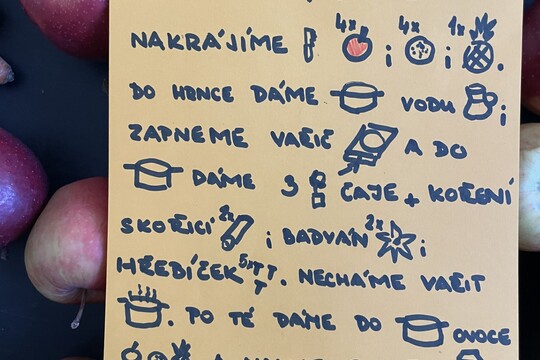 NAKRÁJÍME 4x ; 4x ; 1x .
DO HRNCE DÁME VODU ;
ZAPNEME VAŘIČ A DO
DÁME 3 ČAJE + KOŘENÍ
SKOŘICI 2x ; BADYÁN 2x ;
HŘEBÍČEK 5x . NECHÁME VAŘIT
. PO TÉ DÁME DO OVOCE